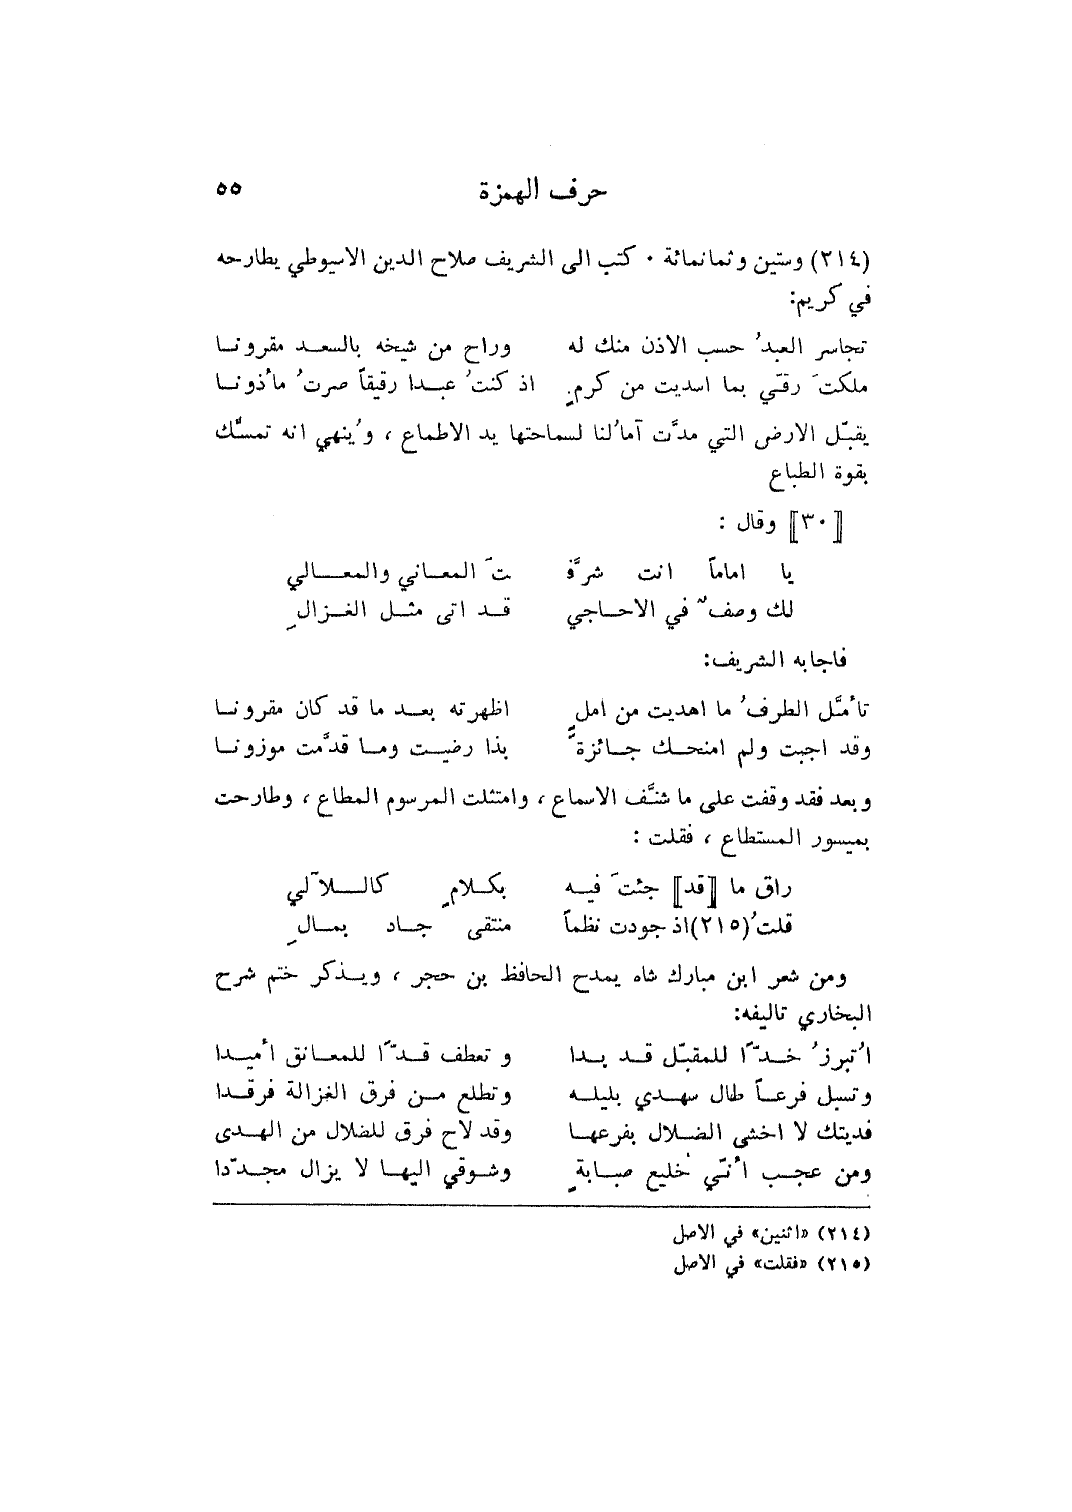 حرف الهمزة ٥٥
(٢١٤) وستين وثمانمائة ٠ كتب الى الشريف صلاح الدين الاسيوطي يطارحه
في كريم:
تجاسر العبدُ حسب الاذن منك له وراح من شيخه بالسعد مقرونا
ملكتَ رقّي بما اسديت من كرمٍ اذ كنتُ عبدا رقيقاً صرتُ مأذونا
يقبّل الارض التي مدَّت آمالُنا لسماحتها يد الاطماع ، ويُنهي انه تمسَّك
بقوة الطباع
[٣٠] وقال :
يا اماماً انت شرَّف تَ المعاني والمعالي
لك وصفٌ في الاحاجي قد اتى مثل الغزالِ
فاجابه الشريف:
تأمَّل الطرفُ ما اهديت من املٍ اظهرته بعد ما قد كان مقرونا
وقد اجبت ولم امنحك جائزةً بذا رضيت وما قدَّمت موزونا
وبعد فقد وقفت على ما شنَّف الاسماع ، وامتثلت المرسوم المطاع ، وطارحت
بميسور المستطاع ، فقلت :
راق ما [قد] جئتَ فيه بكلامٍ كاللآلي
قلتُ(٢١٥)اذ جودت نظماً منتقى جاد بمالِ
ومن شعر ابن مبارك شاه يمدح الحافظ بن حجر ، ويذكر ختم شرح
البخاري تاليفه:
اُتبرزُ خدّاً للمقبّل قد بدا وتعطف قدّاً للمعانق أميدا
وتسبل فرعاً طال سهدي بليله وتطلع من فرق الغزالة فرقدا
فديتك لا اخشى الضلال بفرعها وقد لاح فرق للضلال من الهدى
ومن عجب أنّي خليع صبابةٍ وشوقي اليها لا يزال مجدّدا
(٢١٤) «اثنين» في الاصل
(٢١٥) «فقلت» في الاصل